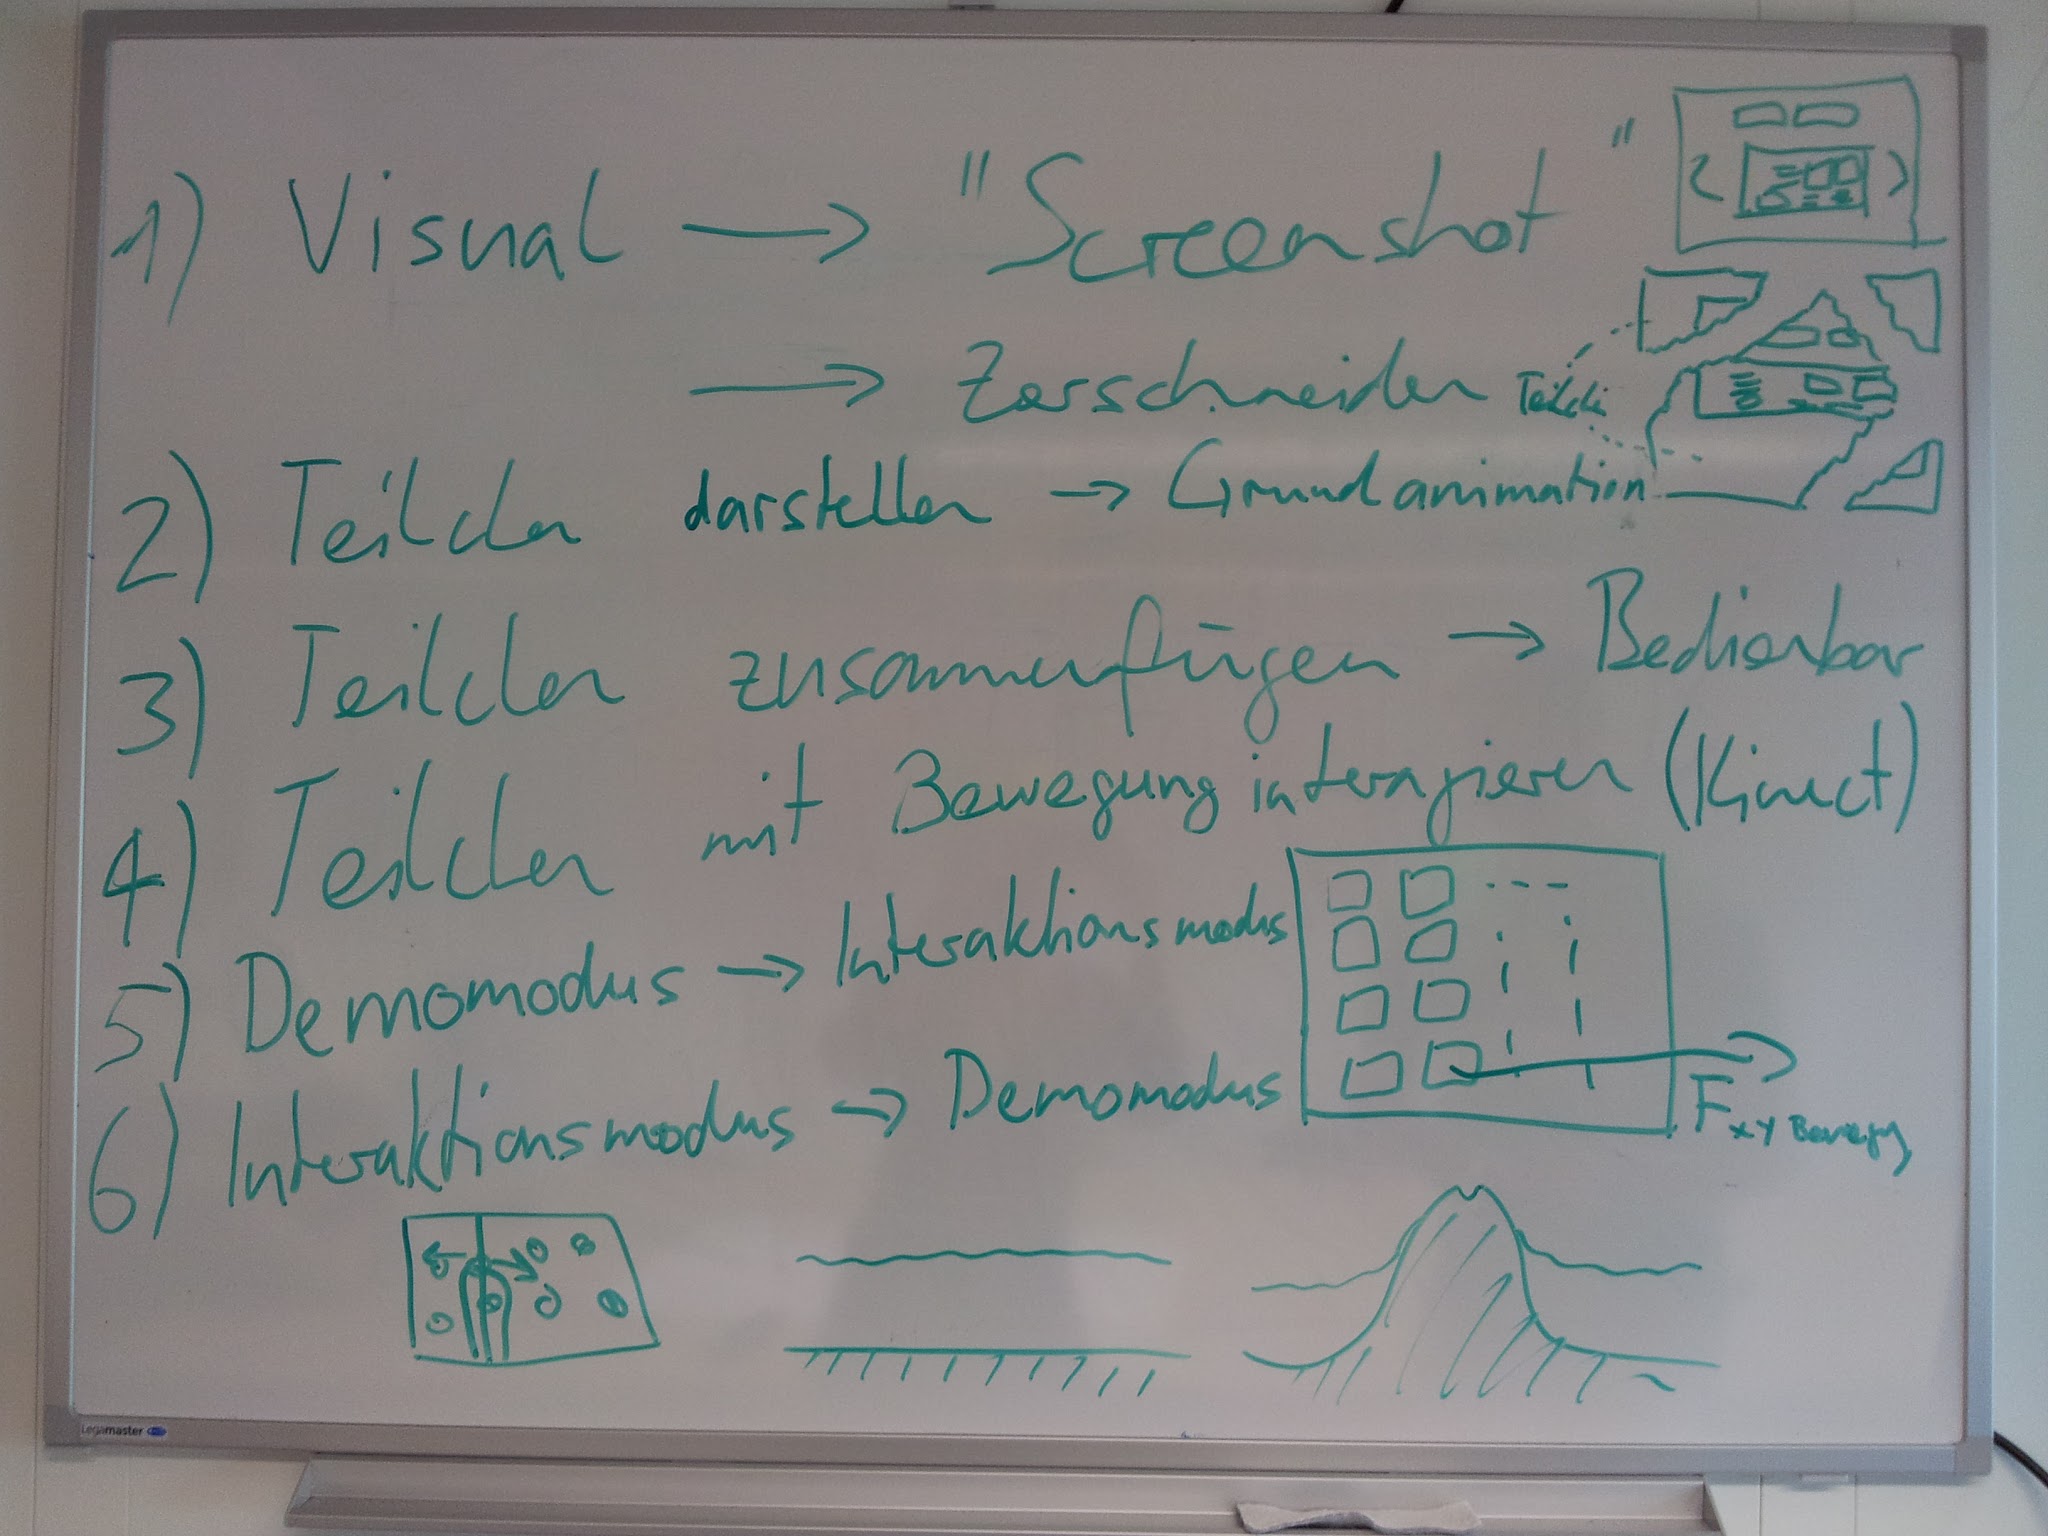 1) Visual → "Screenshot"
→ Zerschneiden
2) Teilchen darstellen → Grundanimation
3) Teilchen zusammenfügen → Bedienbar
4) Teilchen mit Bewegung interagieren (Kinect)
5) Demomodus → Interaktionsmodus
6) Interaktionsmodus → Demomodus
F xy
Legamaster